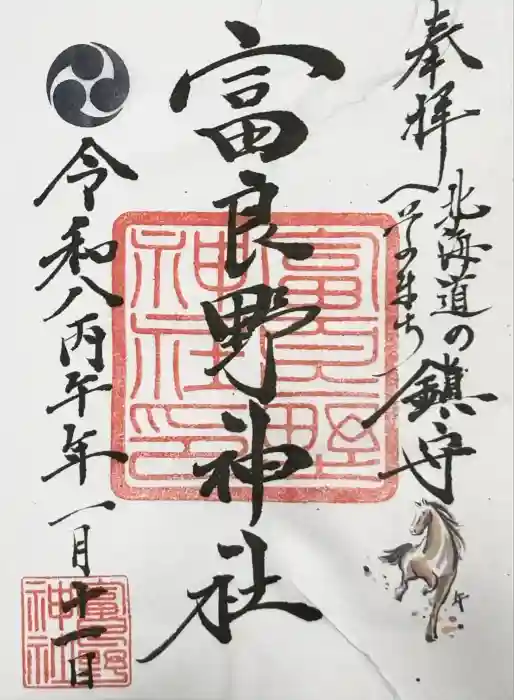 奉拝
北海道の
へそのまち
鎮守
富良野神社
富良野神社印
令和八丙午年 一月十一日
富良野神社